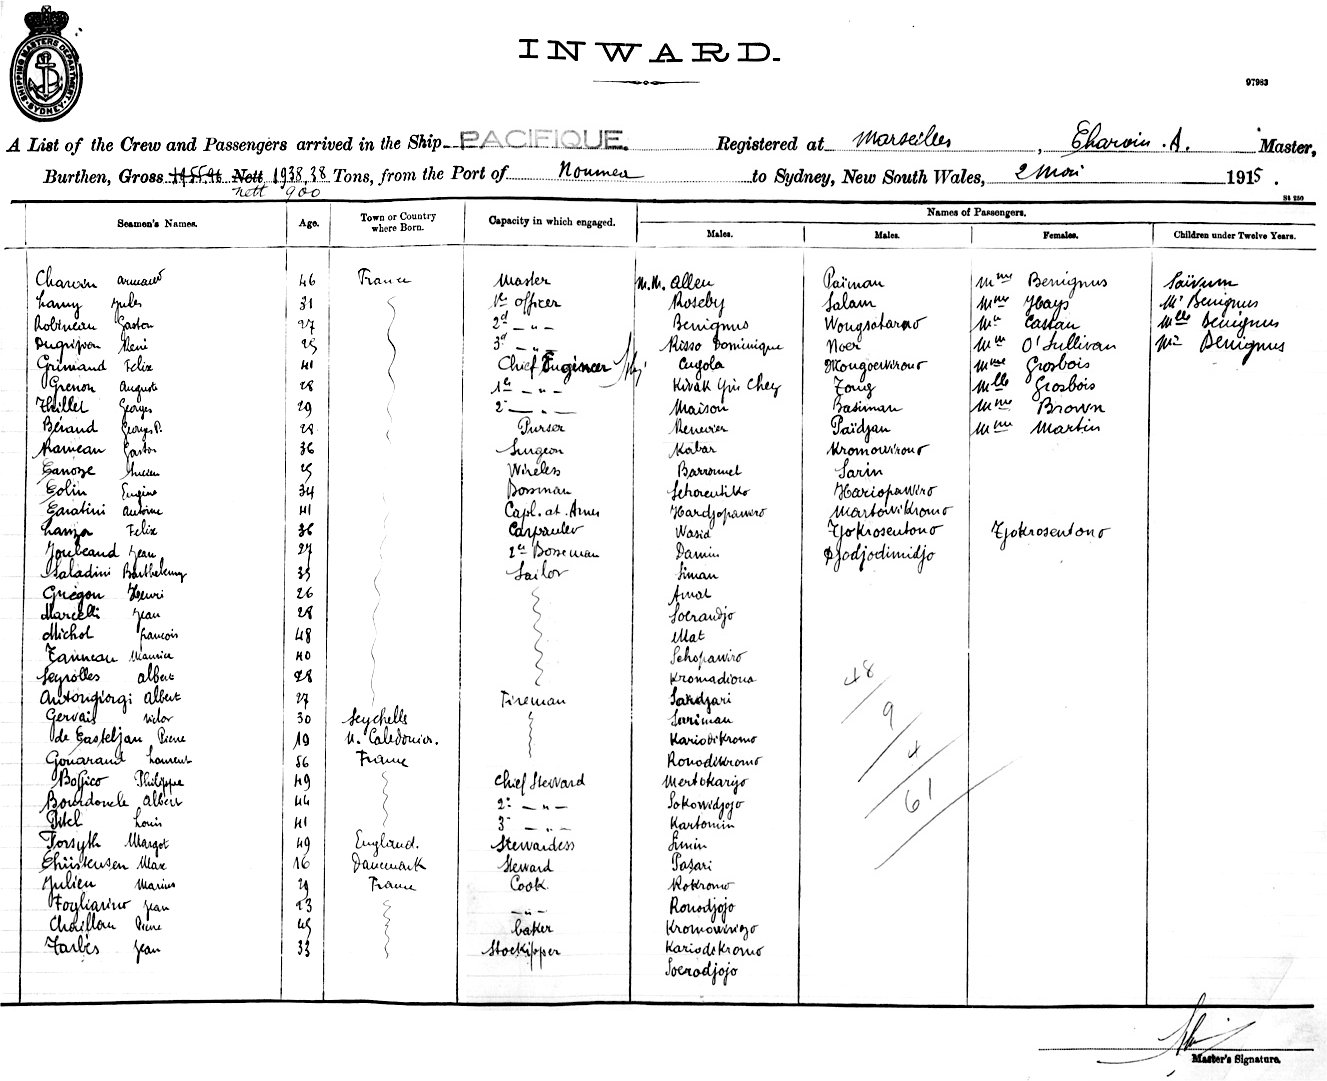 SHIPPING MASTERS DEPARTMENT. SYDNEY.
INWARD.
97983
A List of the Crew and Passengers arrived in the Ship PACIFIQUE. Registered at Marseilles, Charvin. A. Master,
Burthen, Gross Nett 1938,38 Tons, from the Port of Noumea to Sydney, New South Wales, 2 Mai 1915.
nett 900
St 250
Seamen's Names. Age. Town or Country where Born. Capacity in which engaged. Names of Passengers.
Males. Males. Females. Children under Twelve Years.
Charvin Armand 46 France Master M.M. Allen Païman Mme Benignus Saïvum
Lamy Jules 31 1er officer Roseby Salam Mme Hays Mr Benignus
Robineau Gaston 27 2d - " - Benignus Wongsotaruno Cassan Mlle Benignus
René 3d - " - Risso Dominique Noer O'Sullivan Benignus
Grimaud Felix 41 Chief Engineer Cugola Mongoewirono Mme Grosbois
Grenon Auguste 28 1er - " - Kivak Yin Chey Zong Mlle Grosbois
Theillet Georges 29 2 - " - Maison Basiman Mme Brown
Bérand Georges P. 28 Purser Renevier Païdjan Mme Martin
Rameau Gaston 36 Surgeon Kabar Kromowirono
Canoze Lucien Wireless Barronnet Sarin
Colin Eugène 34 Bossman Sehorentiko Hariopawiro
Caratini Antoine 41 Capt. at. Arms Hardjopawiro Martowikromo
Lanza Felix 36 Carpauler Wasid Tjokrosentono Tjokrosentono
Joubeaud Jean 27 2er Bosseman Damin Djodjodimidjo
Saladini Barthelemy 35 Sailor Siman
Grégon Henri 26 Amat
Marcelli Jean 28 Soerandjo
Michol francois 48 Mat
Tanneau Maurice 40 Sehopawiro
Seyrolles Albert 28 Kromadiona
48
Antongiorgi Albert 27 Fireman Sardjari
Gervais Victor 30 Seychells Sariman
9
de Casteljau Pierre 19 N. Caledonier. Kariodikromo
4
Gouarand Laurent 56 France Ronodikromo
Bossico Philippe 49 Chief Steward Mertokarijo
61
Bourdoncle Albert 44 2e - " - Sokowidjojo
Pitel Louis 41 3 - " - Kartomin
Forsyth Margot 49 England. Stewardess Simin
Christensen Max 16 Danemark Steward Pasari
Julien Marius 29 France Cook Kokromo
Fogliarino Jean 23 - " - Ronodjojo
Chaillou Pierre 45 baker Kromowirigo
Tarbès Jean 33 Stockipper Kariodikromo
Soerodjojo
Master's Signature.